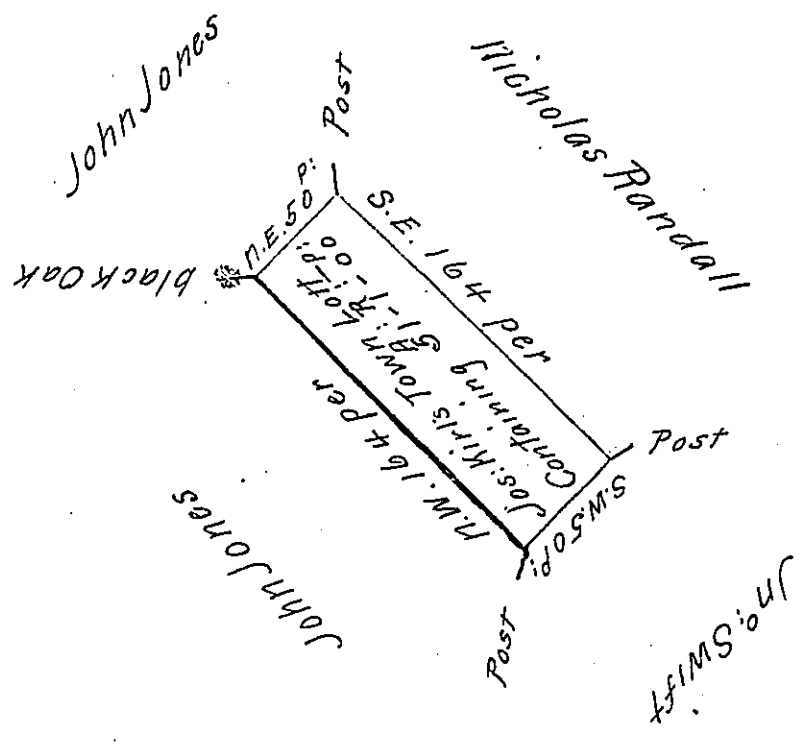 John Jones
Post
Nicholas Randall
black Oak
N.E. 50 p:
S.E. 164 per
Jos: Kirls Town Lott
Containing A: R: P:
51 - 1 - 00
N.W. 164 per
S.W. 50 p:
Post
Post
John Jones
Jno: Swift